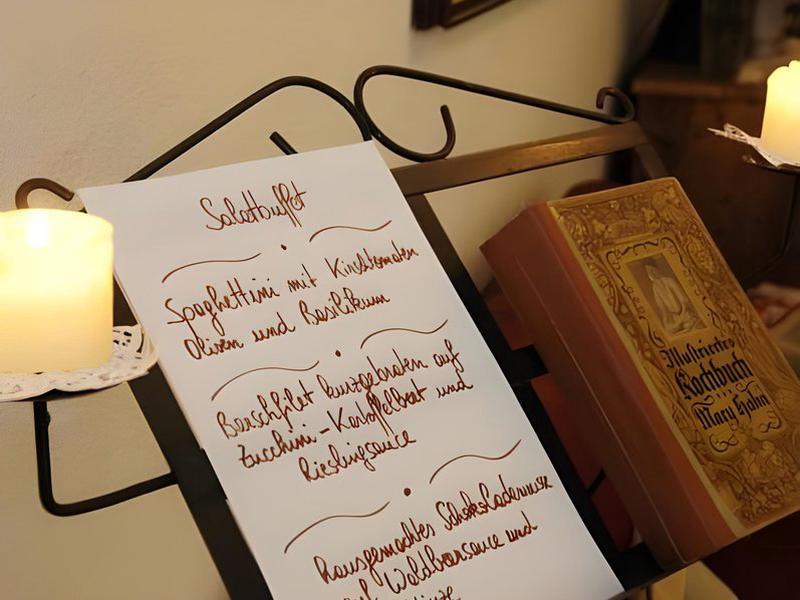 Salatbuffet
Spaghettini mit Kirschtomaten
Oliven und Basilikum
Barschfilet kurzgebraten auf
Zucchini-Kartoffelbeet und
Rieslingsauce
Hausgemachtes Schokoladenmus
auf Waldbeersauce und
Illustriertes
Kochbuch
Mary Hahn